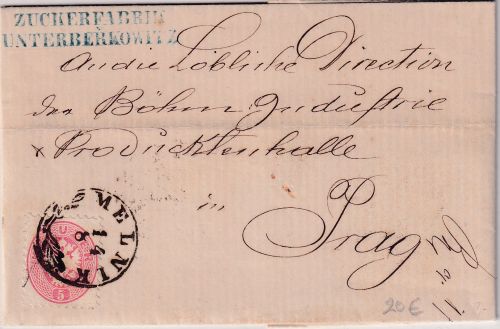 ZUCKERFABRIK
UNTERBERKOWITZ
An die Löbliche Direction
der Böhm. Industrie
& Producktenhalle
in
Prag
MELNIK
14
8
5
20€